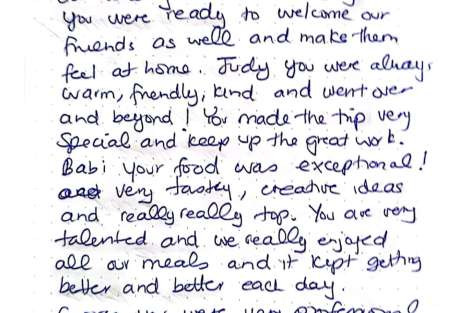 You were ready to welcome our
friends as well and make them
feel at home. Judy you were always
warm, friendly, kind and went over
and beyond! You made the trip very
Special and keep up the great work.
Babi your food was exceptional!
very tastey, creative ideas
and really really top. You are very
talented and we really enjoyed
all our meals and it kept getting
better and better each day.